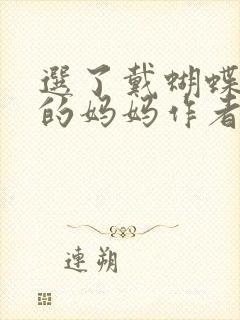 選了戴蝴蝶
的妈妈作者
連朔